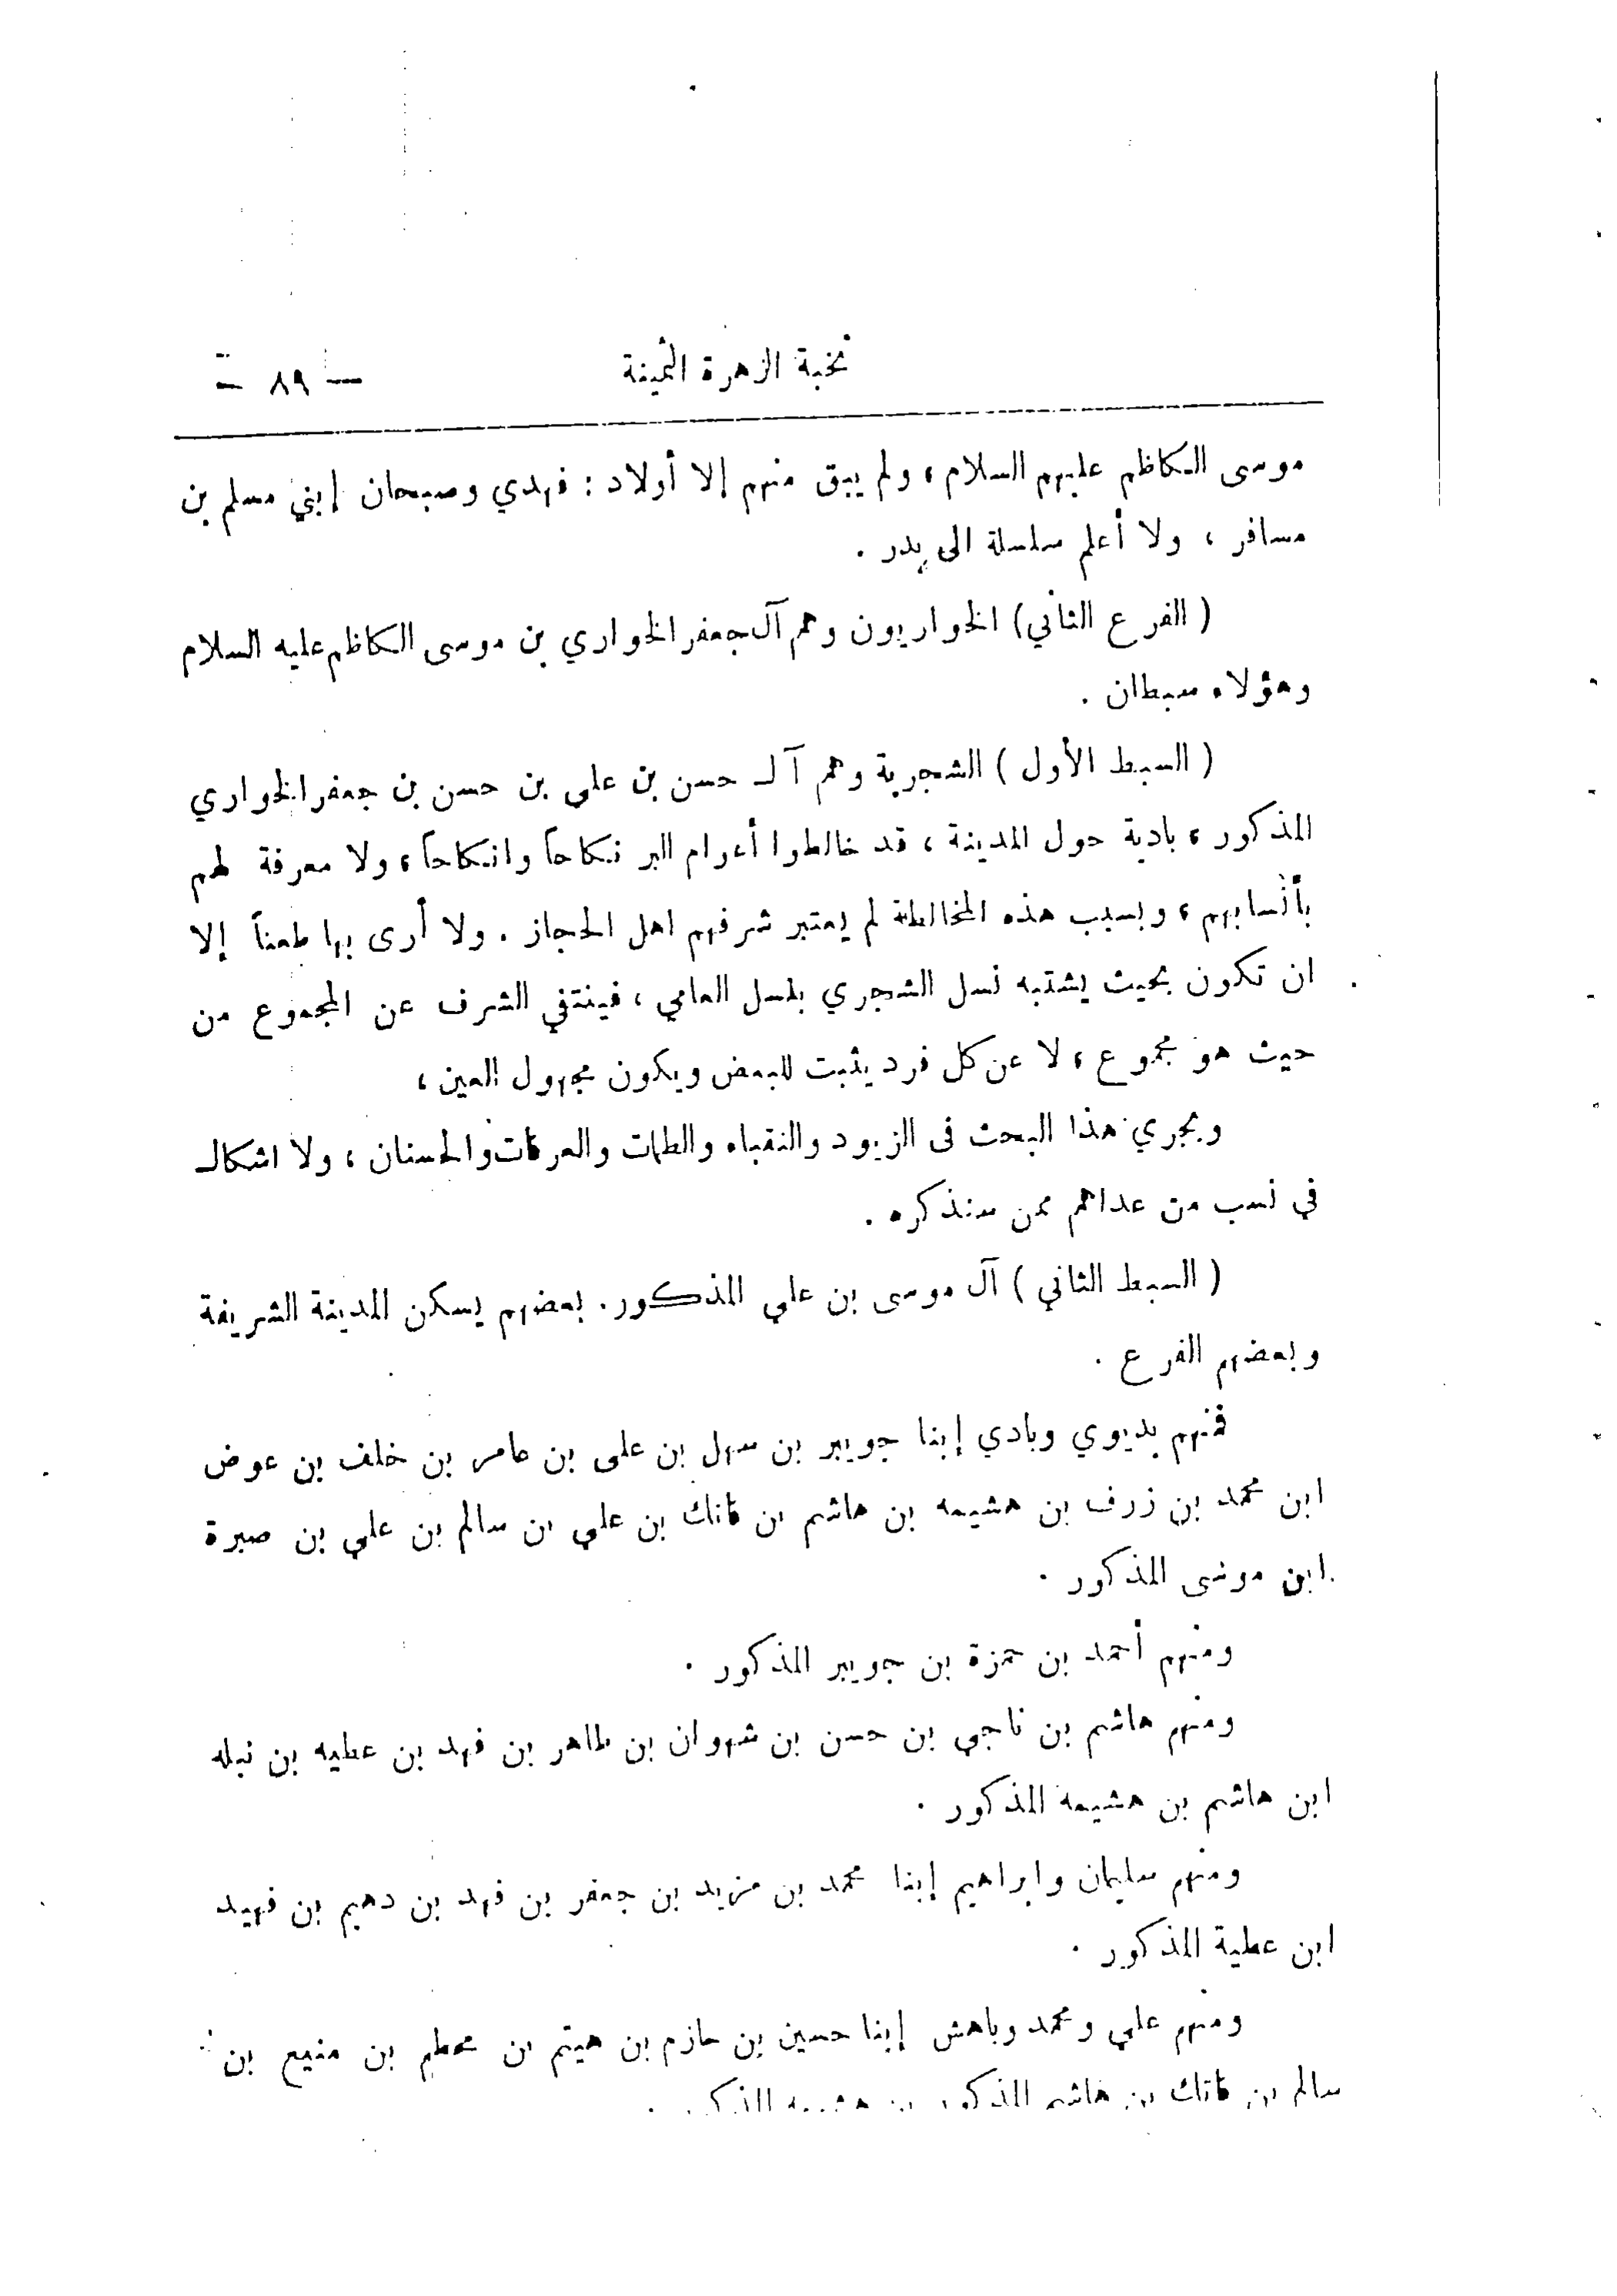 نخبة الزهرة الثمينة
— ٨٩ —
موسى الكاظم عليهم السلام ، ولم يبق منهم إلا أولاد : فهدي وصبحان إبني مسلم بن
مسافر ، ولا أعلم سلسلة الى بدر .
( الفرع الثاني ) الخواريون وهم آل جعفر الخواري بن موسى الكاظم عليه السلام
وهؤلاء سبطان .
( السبط الأول ) الشجرية وهم آل حسن بن على بن حسن بن جعفر الخواري
المذكور ، بادية حول المدينة ، قد خالطوا أعوام البر نكاحاً وانكاحاً ، ولا معرفة لهم
بأنسابهم ، وبسبب هذه المخالطة لم يعتبر شرفهم اهل الحجاز . ولا أرى بها طعناً إلا
ان تكون بحيث يشتبه نسل الشجري بنسل العامي ، فينتفي الشرف عن المجموع من
حيث هو مجموع ، لا عن كل فرد يثبت للبعض ويكون مجهول العين ،
ويجري هذا البحث فى الزيود والنقباء والطهات والعرفات والحسنان ، ولا اشكال
في نسب من عداهم ممن سنذكره .
( السبط الثاني ) آل موسى بن علي المذكور . بعضهم يسكن المدينة الشريفة
وبعضهم الفرع .
فمنهم بديوي وبادي إبنا جويبر بن سهل بن على بن عامر بن خلف بن عوض
ابن محمد بن زرف بن هشيمه بن هاشم بن فاتك بن علي بن سالم بن علي بن صبرة
ابن موسى المذكور .
ومنهم أحمد بن حمزة بن جويبر المذكور .
ومنهم هاشم بن ناجي بن حسن بن شهوان بن طاهر بن فهد بن عطيه بن نبله
ابن هاشم بن هشيمة المذكور .
ومنهم سليمان وابراهيم إبنا محمد بن مزيد بن جعفر بن فهد بن دهيم بن فهيد
ابن عطية المذكور .
ومنهم علي ومحمد وباهش إبنا حسين بن حازم بن هيتم بن محطم بن منيع بن
سالم بن فاتك بن هاشم المذكور بن هشيمه المذكور .